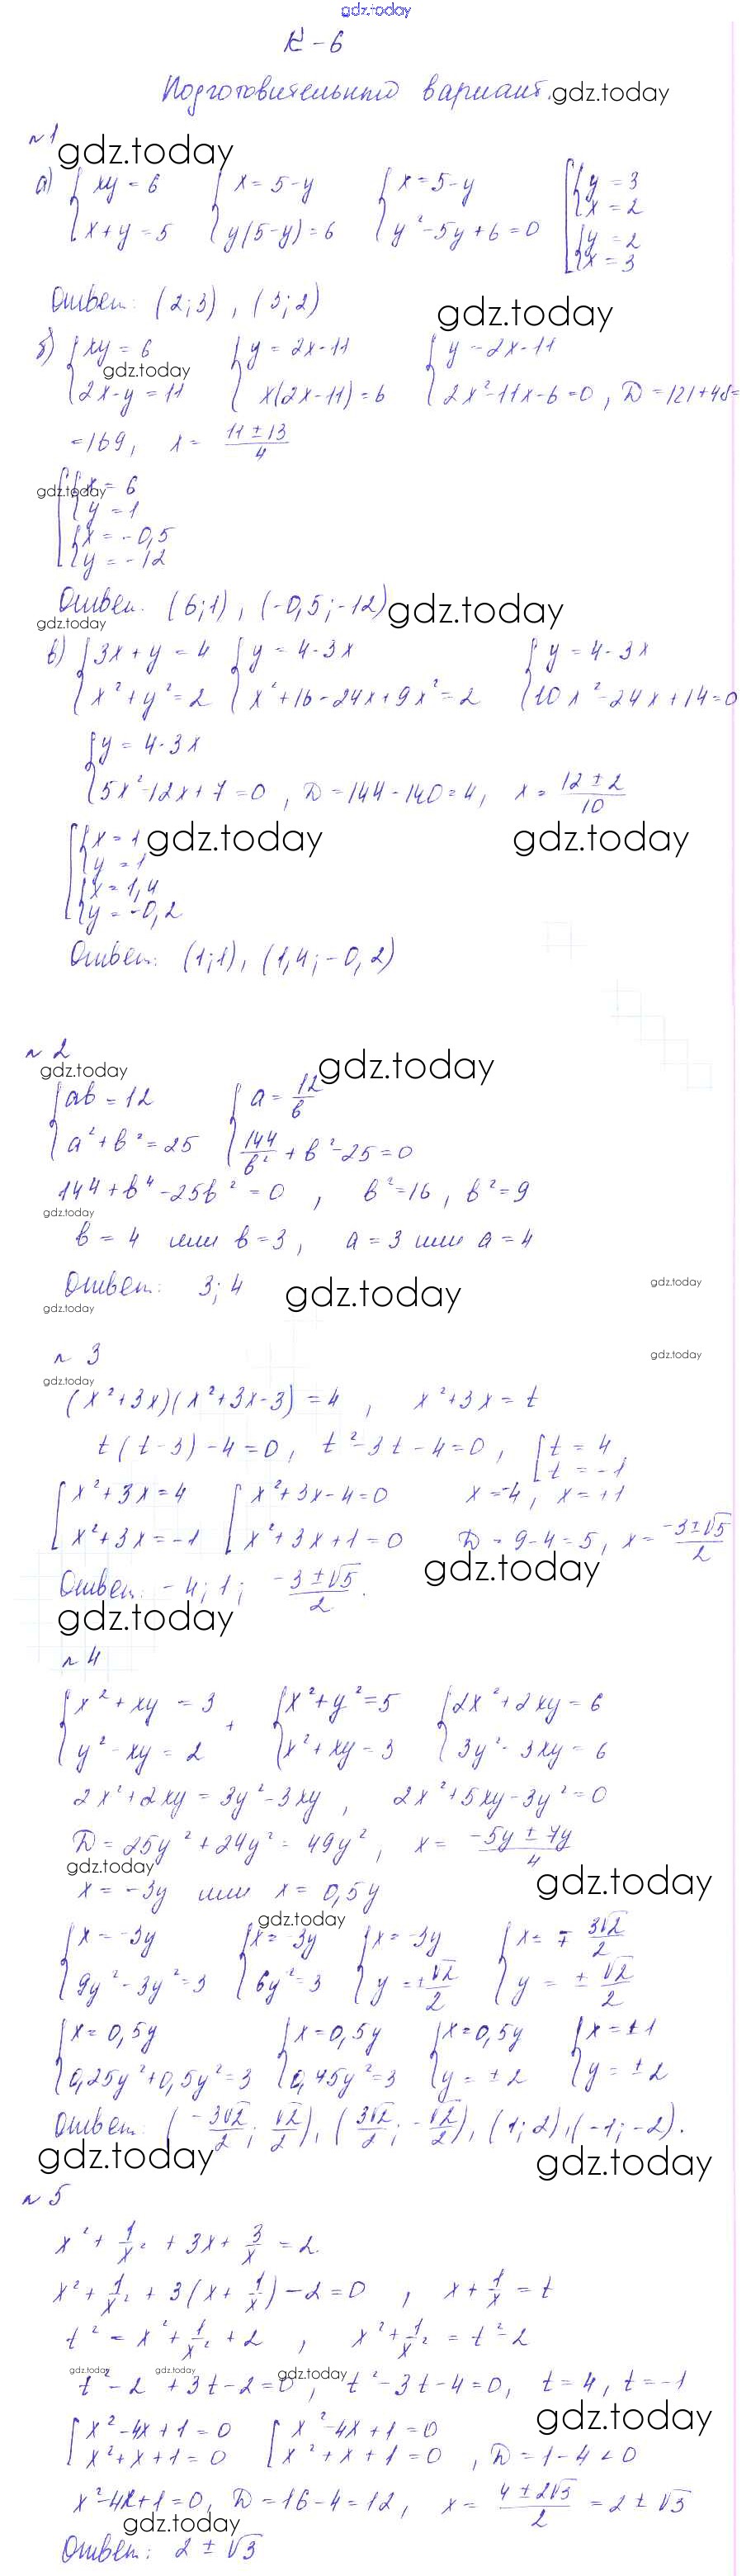 gdz.today
К-6
Подготовительный вариант. gdz.today
№1 gdz.today
а) { xy = 6 { x = 5-y { x = 5-y [ { y = 3
x + y = 5 y(5-y) = 6 y² - 5y + 6 = 0 x = 2
{ y = 2
x = 3
Ответ: (2;3), (3;2) gdz.today
б) { xy = 6 { y = 2x-11 { y = 2x-11
gdz.today
2x-y = 11 x(2x-11) = 6 2x²-11x-6=0, D = 121+48=
=169, x = (11 ± 13)/4
gdz.today
[ { x = 6
y = 1
{ x = -0,5
y = -12
Ответ. (6;1), (-0,5;-12) gdz.today
gdz.today
в) { 3x + y = 4 { y = 4-3x { y = 4-3x
x² + y² = 2 x²+16-24x+9x² = 2 10x²-24x+14=0
{ y = 4-3x
5x²-12x+7=0, D = 144-140=4, x = (12 ± 2)/10
[ { x = 1 gdz.today gdz.today
y = 1
{ x = 1,4
y = -0,2
Ответ: (1;1), (1,4;-0,2)
№2
gdz.today gdz.today
{ ab = 12 { a = 12/b
a² + b² = 25 144/b² + b² - 25 = 0
144 + b⁴ - 25b² = 0, b² = 16, b² = 9
gdz.today
b = 4 или b = 3, a = 3 или a = 4
Ответ: 3; 4 gdz.today gdz.today
gdz.today
№3 gdz.today
gdz.today
(x²+3x)(x²+3x-3) = 4, x²+3x = t
t(t-3)-4=0, t²-3t-4=0, [ t = 4
t = -1
[ x²+3x = 4 [ x²+3x-4=0 x = -4, x = +1
x²+3x = -1 x²+3x+1=0 D = 9-4=5, x = (-3±√5)/2
Ответ: -4; 1; (-3±√5)/2. gdz.today
gdz.today
№4
{ x² + xy = 3 + { x²+y²=5 { 2x²+2xy = 6
y² - xy = 2 x²+xy = 3 3y²-3xy = 6
2x²+2xy = 3y²-3xy, 2x²+5xy-3y²=0
D = 25y²+24y² = 49y², x = (-5y ± 7y)/4
gdz.today gdz.today
x = -3y или x = 0,5y
gdz.today
{ x = -3y { x = -3y { x = -3y { x = ∓ 3√2/2
9y²-3y²=3 6y²=3 y = ±√2/2 y = ± √2/2
{ x = 0,5y { x = 0,5y { x = 0,5y { x = ±1
0,25y²+0,5y²=3 0,75y²=3 y = ±2 y = ±2
Ответ: (-3√2/2; √2/2), (3√2/2; -√2/2), (1;2), (-1;-2).
gdz.today gdz.today
№5
x² + 1/x² + 3x + 3/x = 2.
x² + 1/x² + 3(x + 1/x) - 2 = 0, x + 1/x = t
t² = x² + 1/x² + 2, x² + 1/x² = t²-2
gdz.today gdz.today gdz.today
t²-2+3t-2=0, t²-3t-4=0, t = 4, t = -1
gdz.today
[ x²-4x+1=0 [ x²-4x+1=0
x²+x+1=0 x²+x+1=0, D = 1-4<0
x²-4x+1=0, D = 16-4=12, x = (4±2√3)/2 = 2±√3
gdz.today
Ответ: 2±√3